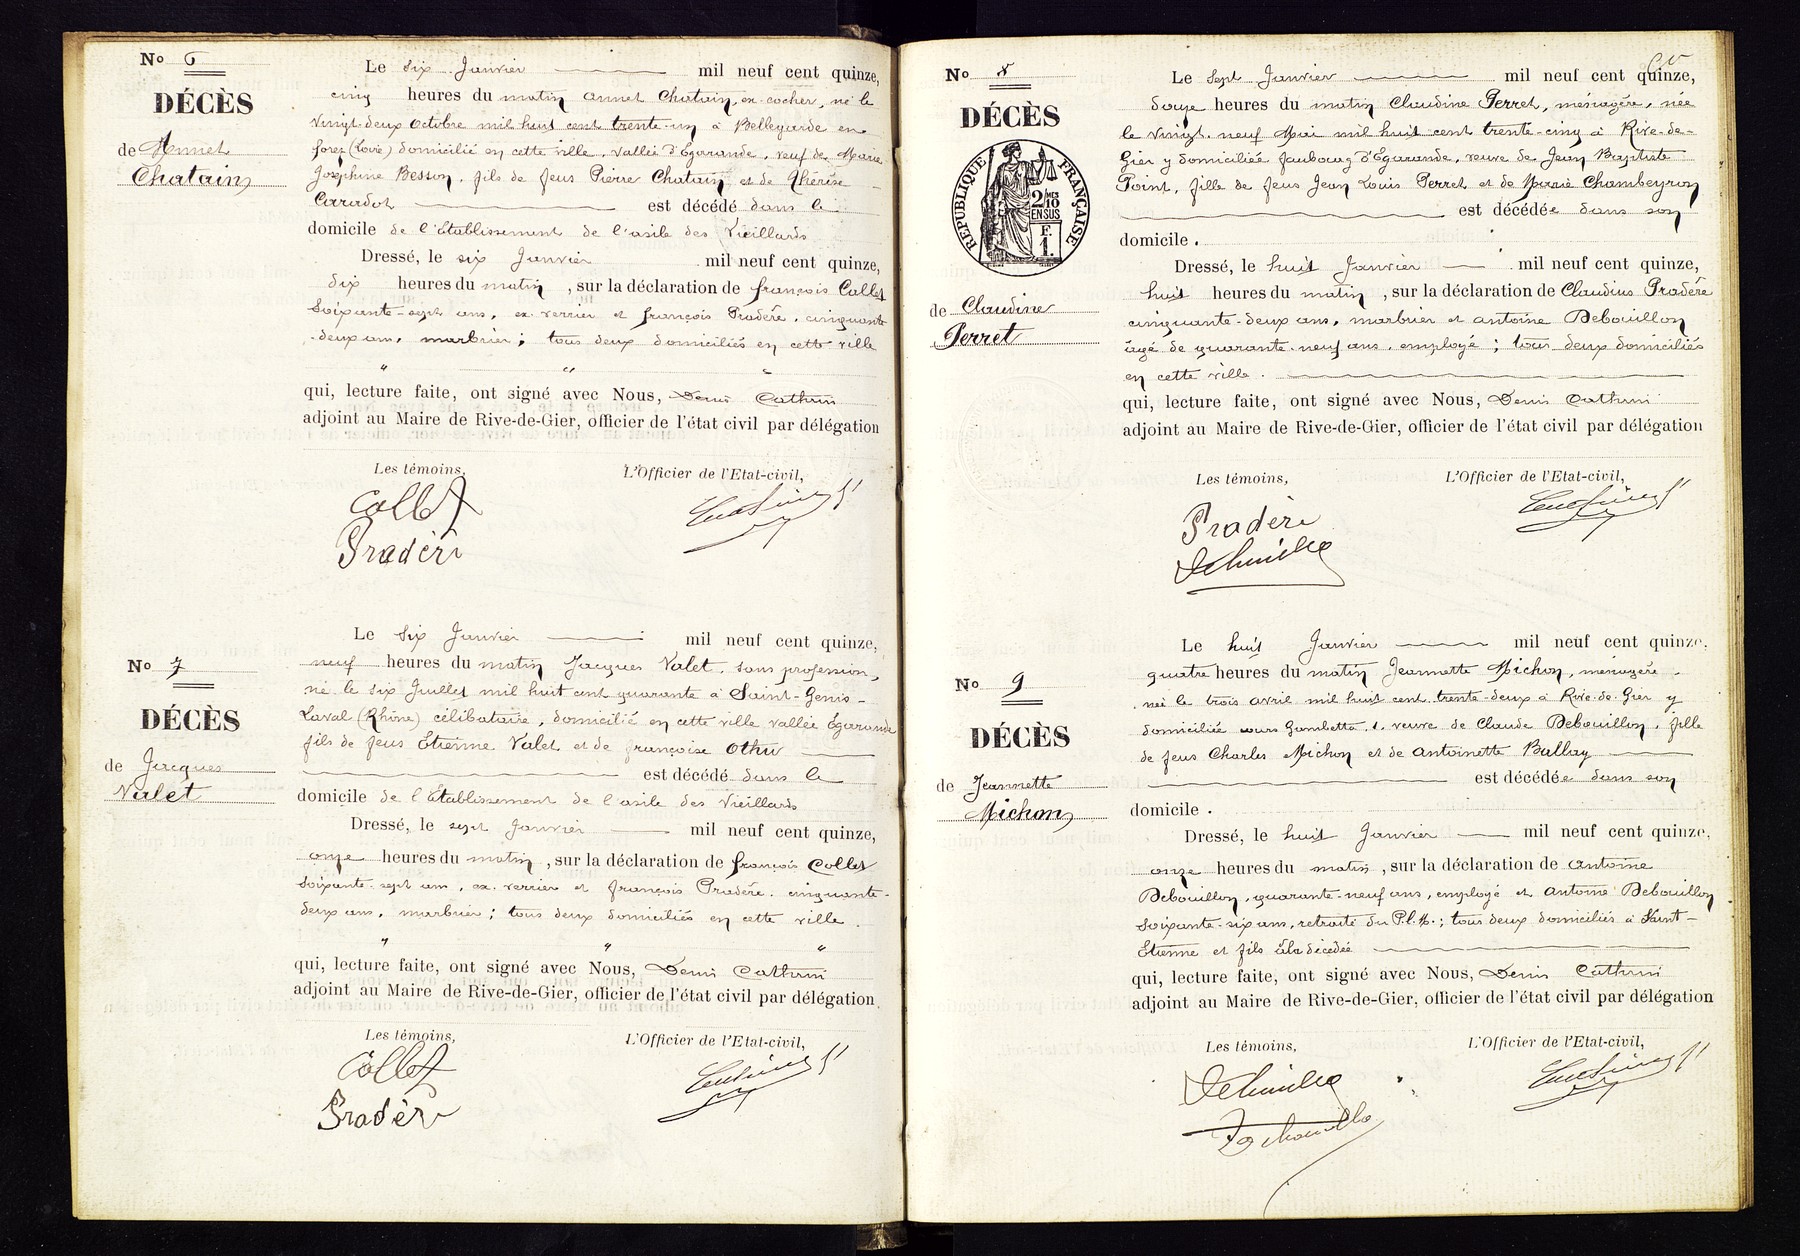 No 6
DÉCÈS
de Annet
Chatain
Le six Janvier mil neuf cent quinze,
cinq heures du matin Annet Chatain, ex-cocher, né le
vingt-deux octobre mil huit cent trente-un à Bellegarde en
forez (Loire) domicilié en cette ville, vallée d'Egarande, veuf de Marie
Joséphine Besson, fils de feus Pierre Chatain et de Thérèse
Carradot est décédé dans le
domicile de l'Etablissement de l'asile des Vieillards
Dressé, le six Janvier mil neuf cent quinze,
dix heures du matin, sur la déclaration de François Collet
soixante-sept ans, ex-verrier et François Pradère, cinquante
-deux ans, marbrier; tous deux domiciliés en cette ville
" " "
qui, lecture faite, ont signé avec Nous, Denis Cathrin
adjoint au Maire de Rive-de-Gier, officier de l'état civil par délégation
Les témoins, L'Officier de l'Etat-civil,
Collet
Pradère
No 7
DÉCÈS
de Jacques
Valet
Le six Janvier mil neuf cent quinze,
neuf heures du matin Jacques Valet, sans profession,
né le six Juillet mil huit cent quarante à Saint-Genis-
Laval (Rhône) célibataire, domicilié en cette ville vallée Egarande
fils de feus Etienne Valet et de françoise Othu
est décédé dans le
domicile de l'Etablissement de l'asile des Vieillards
Dressé, le sept Janvier mil neuf cent quinze,
onze heures du matin, sur la déclaration de françois Collet
soixante-sept ans, ex-verrier et françois Pradère, cinquante-
deux ans, marbrier; tous deux domiciliés en cette ville.
" " "
qui, lecture faite, ont signé avec Nous, Denis Cathrin
adjoint au Maire de Rive-de-Gier, officier de l'état civil par délégation.
Les témoins, L'Officier de l'Etat-civil,
Collet
Pradère
No 8
DÉCÈS
RÉPUBLIQUE FRANÇAISE
2/10 MES
EN SUS
F.
1.
de Claudine
Perret
Le sept Janvier mil neuf cent quinze,
douze heures du matin Claudine Perret, ménagère, née
le vingt-neuf Mai mil huit cent trente-cinq à Rive-de-
Gier y domiciliée faubourg d'Egarande, veuve de Jean Baptiste
Point, fille de feus Jean Louis Perret et de Marie Chambeyron
est décédée dans son
domicile.
Dressé, le huit Janvier mil neuf cent quinze,
huit heures du matin, sur la déclaration de Claudius Pradère
cinquante-deux ans, marbrier et Antoine Debouillon
âgé de quarante-neuf ans, employé; tous deux domiciliés
en cette ville.
qui, lecture faite, ont signé avec Nous, Denis Cathrin
adjoint au Maire de Rive-de-Gier, officier de l'état civil par délégation
Les témoins, L'Officier de l'Etat-civil,
Pradère
No 9
DÉCÈS
de Jeannette
Michon
Le huit Janvier mil neuf cent quinze,
quatre heures du matin Jeannette Michon, ménagère,
née le trois avril mil huit cent trente-deux à Rive-de-Gier y
domiciliée cours Gambetta, 1, veuve de Claude Debouillon, fille
de feus Charles Michon et de Antoinette Ballay
est décédée dans son
domicile.
Dressé, le huit Janvier mil neuf cent quinze,
onze heures du matin, sur la déclaration de Antoine
Debouillon, quarante-neuf ans, employé et Antoine Debouillon
soixante-six ans, retraité du P.L.M.; tous deux domiciliés à Saint-
Etienne et fils à la décédée
qui, lecture faite, ont signé avec Nous, Denis Cathrin
adjoint au Maire de Rive-de-Gier, officier de l'état civil par délégation
Les témoins, L'Officier de l'Etat-civil,